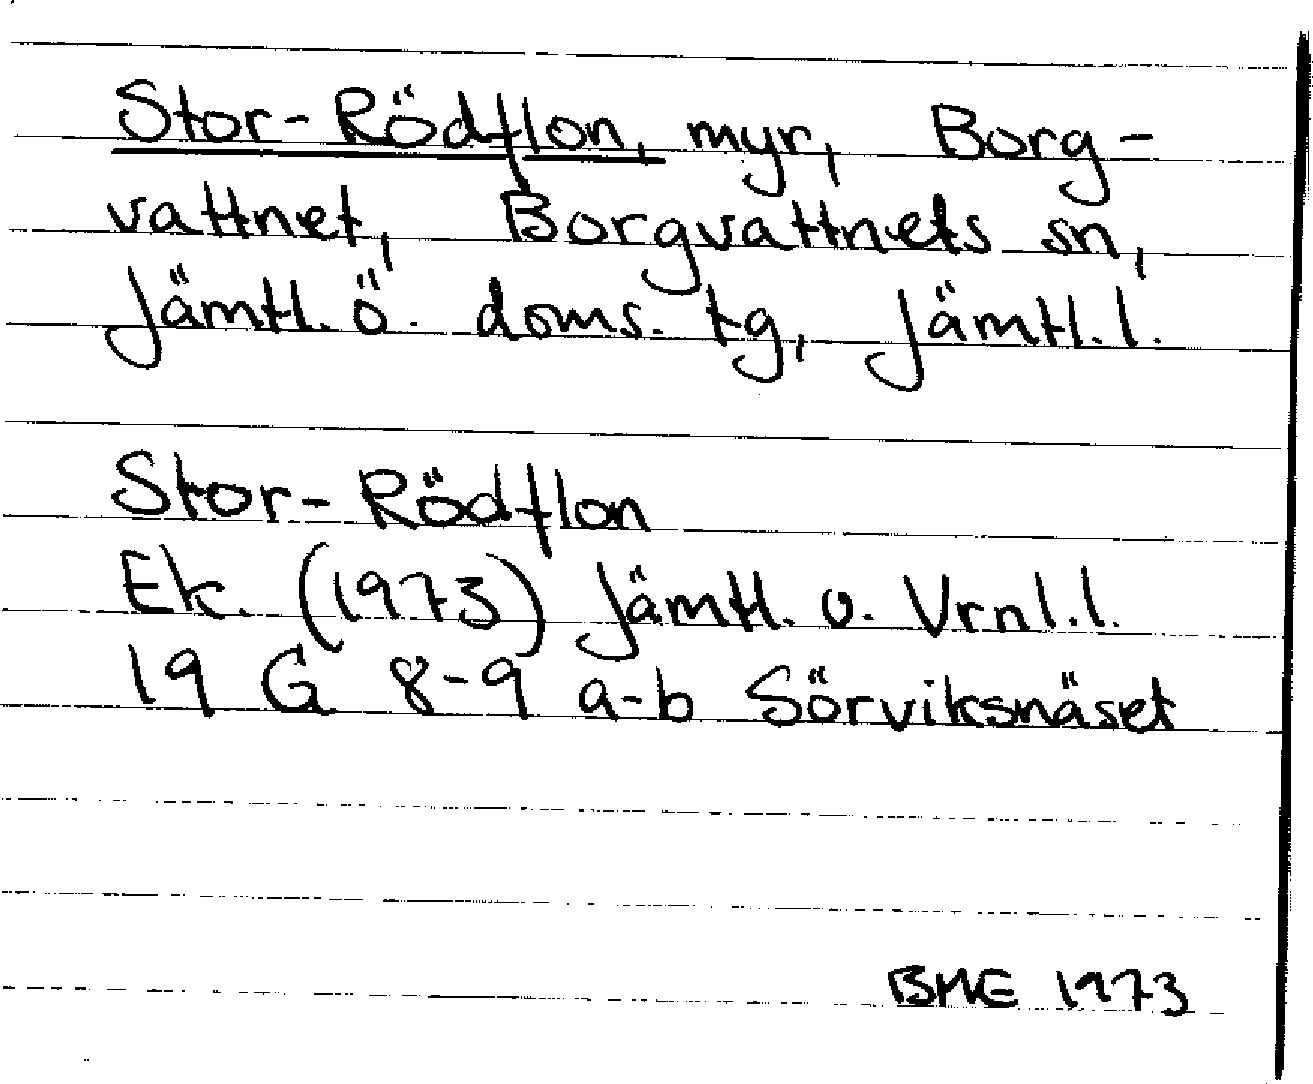 Stor-Rödflon, myr, Borg-
vattnet, Borgvattnets sn,
Jämtl. ö. doms. tg, Jämtl. l.
Stor-Rödflon
Ek. (1973) Jämtl. o. Vrnl. l.
19 G 8-9 a-b Sörviksnäset
BME 1973